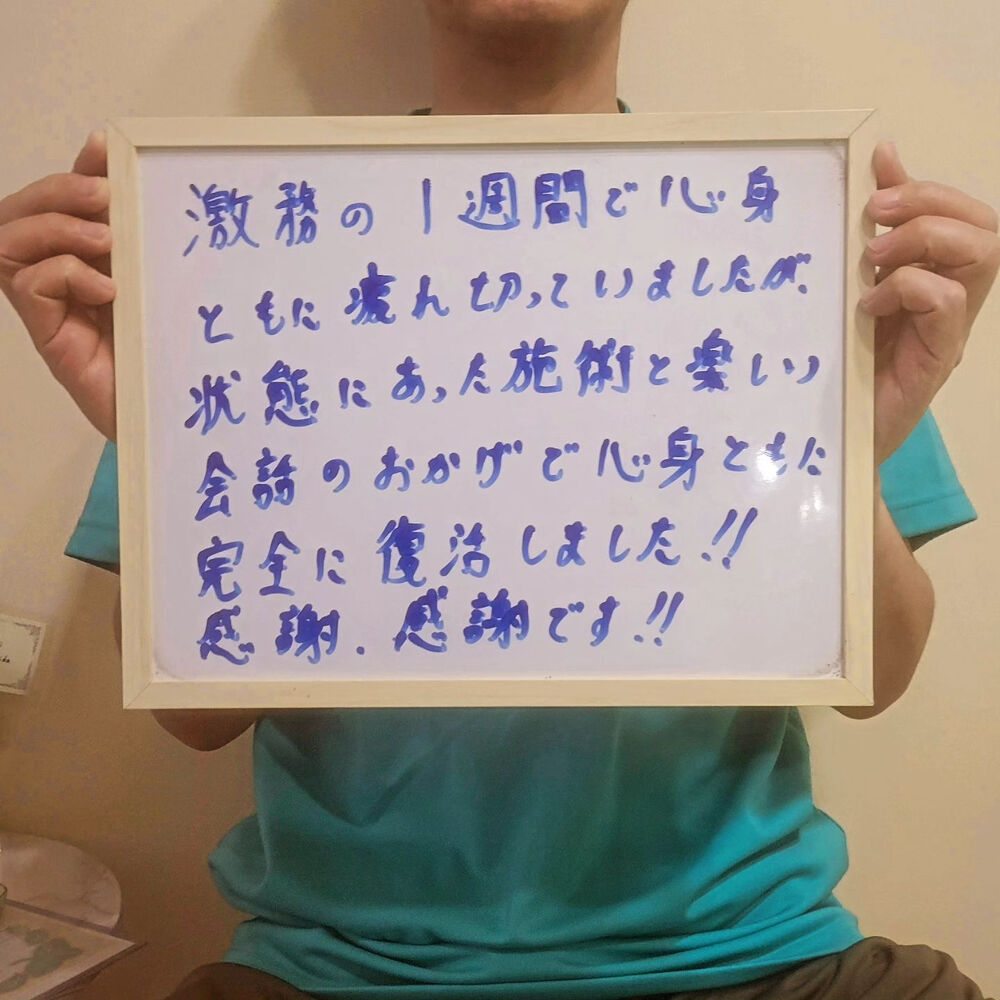 激務の1週間で心身
ともに疲れ切っていましたが、
状態にあった施術と楽しい
会話のおかげで心身ともに
完全に復治しました!!
感謝.感謝です!!